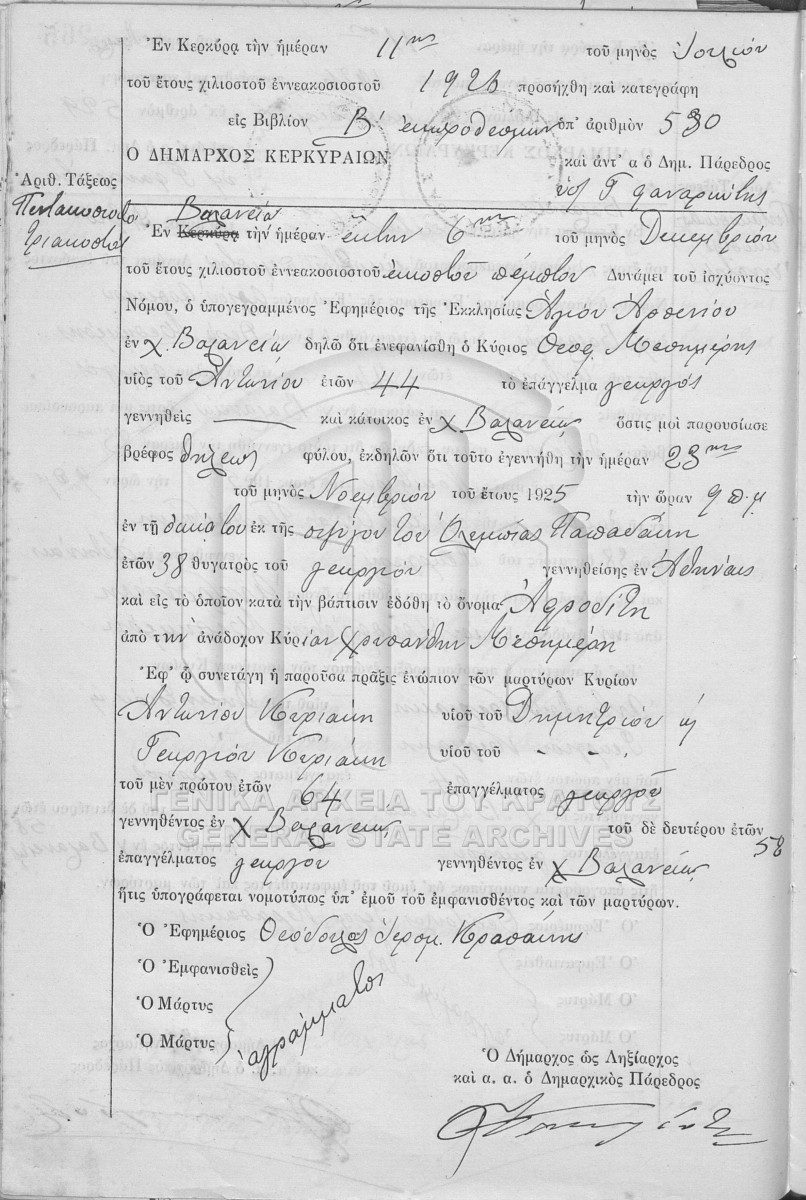 Ἐν Κερκύρᾳ τὴν ἡμέραν 11ην τοῦ μηνὸς Ἰουλίου
τοῦ ἔτους χιλιοστοῦ ἐννεακοσιοστοῦ 1926 προσήχθη καὶ κατεγράφη
εἰς Βιβλίον Β' ἐκπροθέσμων ὑπ' ἀριθμὸν 530
Ο ΔΗΜΑΡΧΟΣ ΚΕΡΚΥΡΑΙΩΝ
καὶ ἀντ' α ὁ Δημ. Πάρεδρος
Ἀριθ. Τάξεως
Πεντακοσιοστὸ
τριακοστὸν
Βαλανειὸ
Ἐν Κερκύρᾳ τὴν ἡμέραν ἕκτην 6ην τοῦ μηνὸς Δεκεμβρίου
τοῦ ἔτους χιλιοστοῦ ἐννεακοσιοστοῦ εἰκοστοῦ πέμπτου Δυνάμει τοῦ ἰσχύοντος
Νόμου, ὁ ὑπογεγραμμένος Ἐφημέριος τῆς Ἐκκλησίας Ἁγίου Ἀρσενίου
ἐν χ. Βαλανειὸ δηλῶ ὅτι ἐνεφανίσθη ὁ Κύριος Θεοφ. Μεσημέρης
υἱὸς τοῦ Ἀντωνίου ἐτῶν 44 τὸ ἐπάγγελμα γεωργὸς
γεννηθεὶς — καὶ κάτοικος ἐν χ Βαλανειὸ ὅστις μοὶ παρουσίασε
βρέφος θήλεως φύλου, ἐκδηλῶν ὅτι τοῦτο ἐγεννήθη τὴν ἡμέραν 23ην
τοῦ μηνὸς Νοεμβρίου τοῦ ἔτους 1925 τὴν ὥραν 9 π.μ
ἐν τῇ οἰκίᾳ του ἐκ τῆς συζύγου του Ὀλυμπίας Παπαδάκη
ἐτῶν 38 θυγατρὸς τοῦ γεωργίου γεννηθείσης ἐν Ἀθηνάις
καὶ εἰς τὸ ὁποῖον κατὰ τὴν βάπτισιν ἐδόθη τὸ ὄνομα Ἀφροδίτη
ἀπὸ τὴν ἀνάδοχον Κυρίαν Χρυσάνθην Μεσημέρη
Ἐφ' ᾧ συνετάγη ἡ παροῦσα πρᾶξις ἐνώπιον τῶν μαρτύρων Κυρίων
Ἀντωνίου Κυριάκη υἱοῦ τοῦ Δημητρίου ἢ
Γεωργίου Κυριάκη υἱοῦ τοῦ - - ,
τοῦ μὲν πρώτου ἐτῶν 64 ἐπαγγέλματος γεωργοῦ
ΓΕΝΙΚΑ ΑΡΧΕΙΑ ΤΟΥ ΚΡΑΤΟΥΣ
γεννηθέντος ἐν χ Βαλανειὸ τοῦ δὲ δευτέρου ἐτῶν 58
GENERAL STATE ARCHIVES
ἐπαγγέλματος γεωργοῦ γεννηθέντος ἐν χ Βαλανειὸ
ἥτις ὑπογράφεται νομοτύπως ὑπ' ἐμοῦ τοῦ ἐμφανισθέντος καὶ τῶν μαρτύρων.
Ὁ Ἐφημέριος Θεόδουλος Ἱερομ.
Ὁ Ἐμφανισθεὶς
Ὁ Μάρτυς
Ὁ Μάρτυς
ἀγράμματοι
Ὁ Δήμαρχος ὡς Ληξίαρχος
καὶ α. α. ὁ Δημαρχικὸς Πάρεδρος